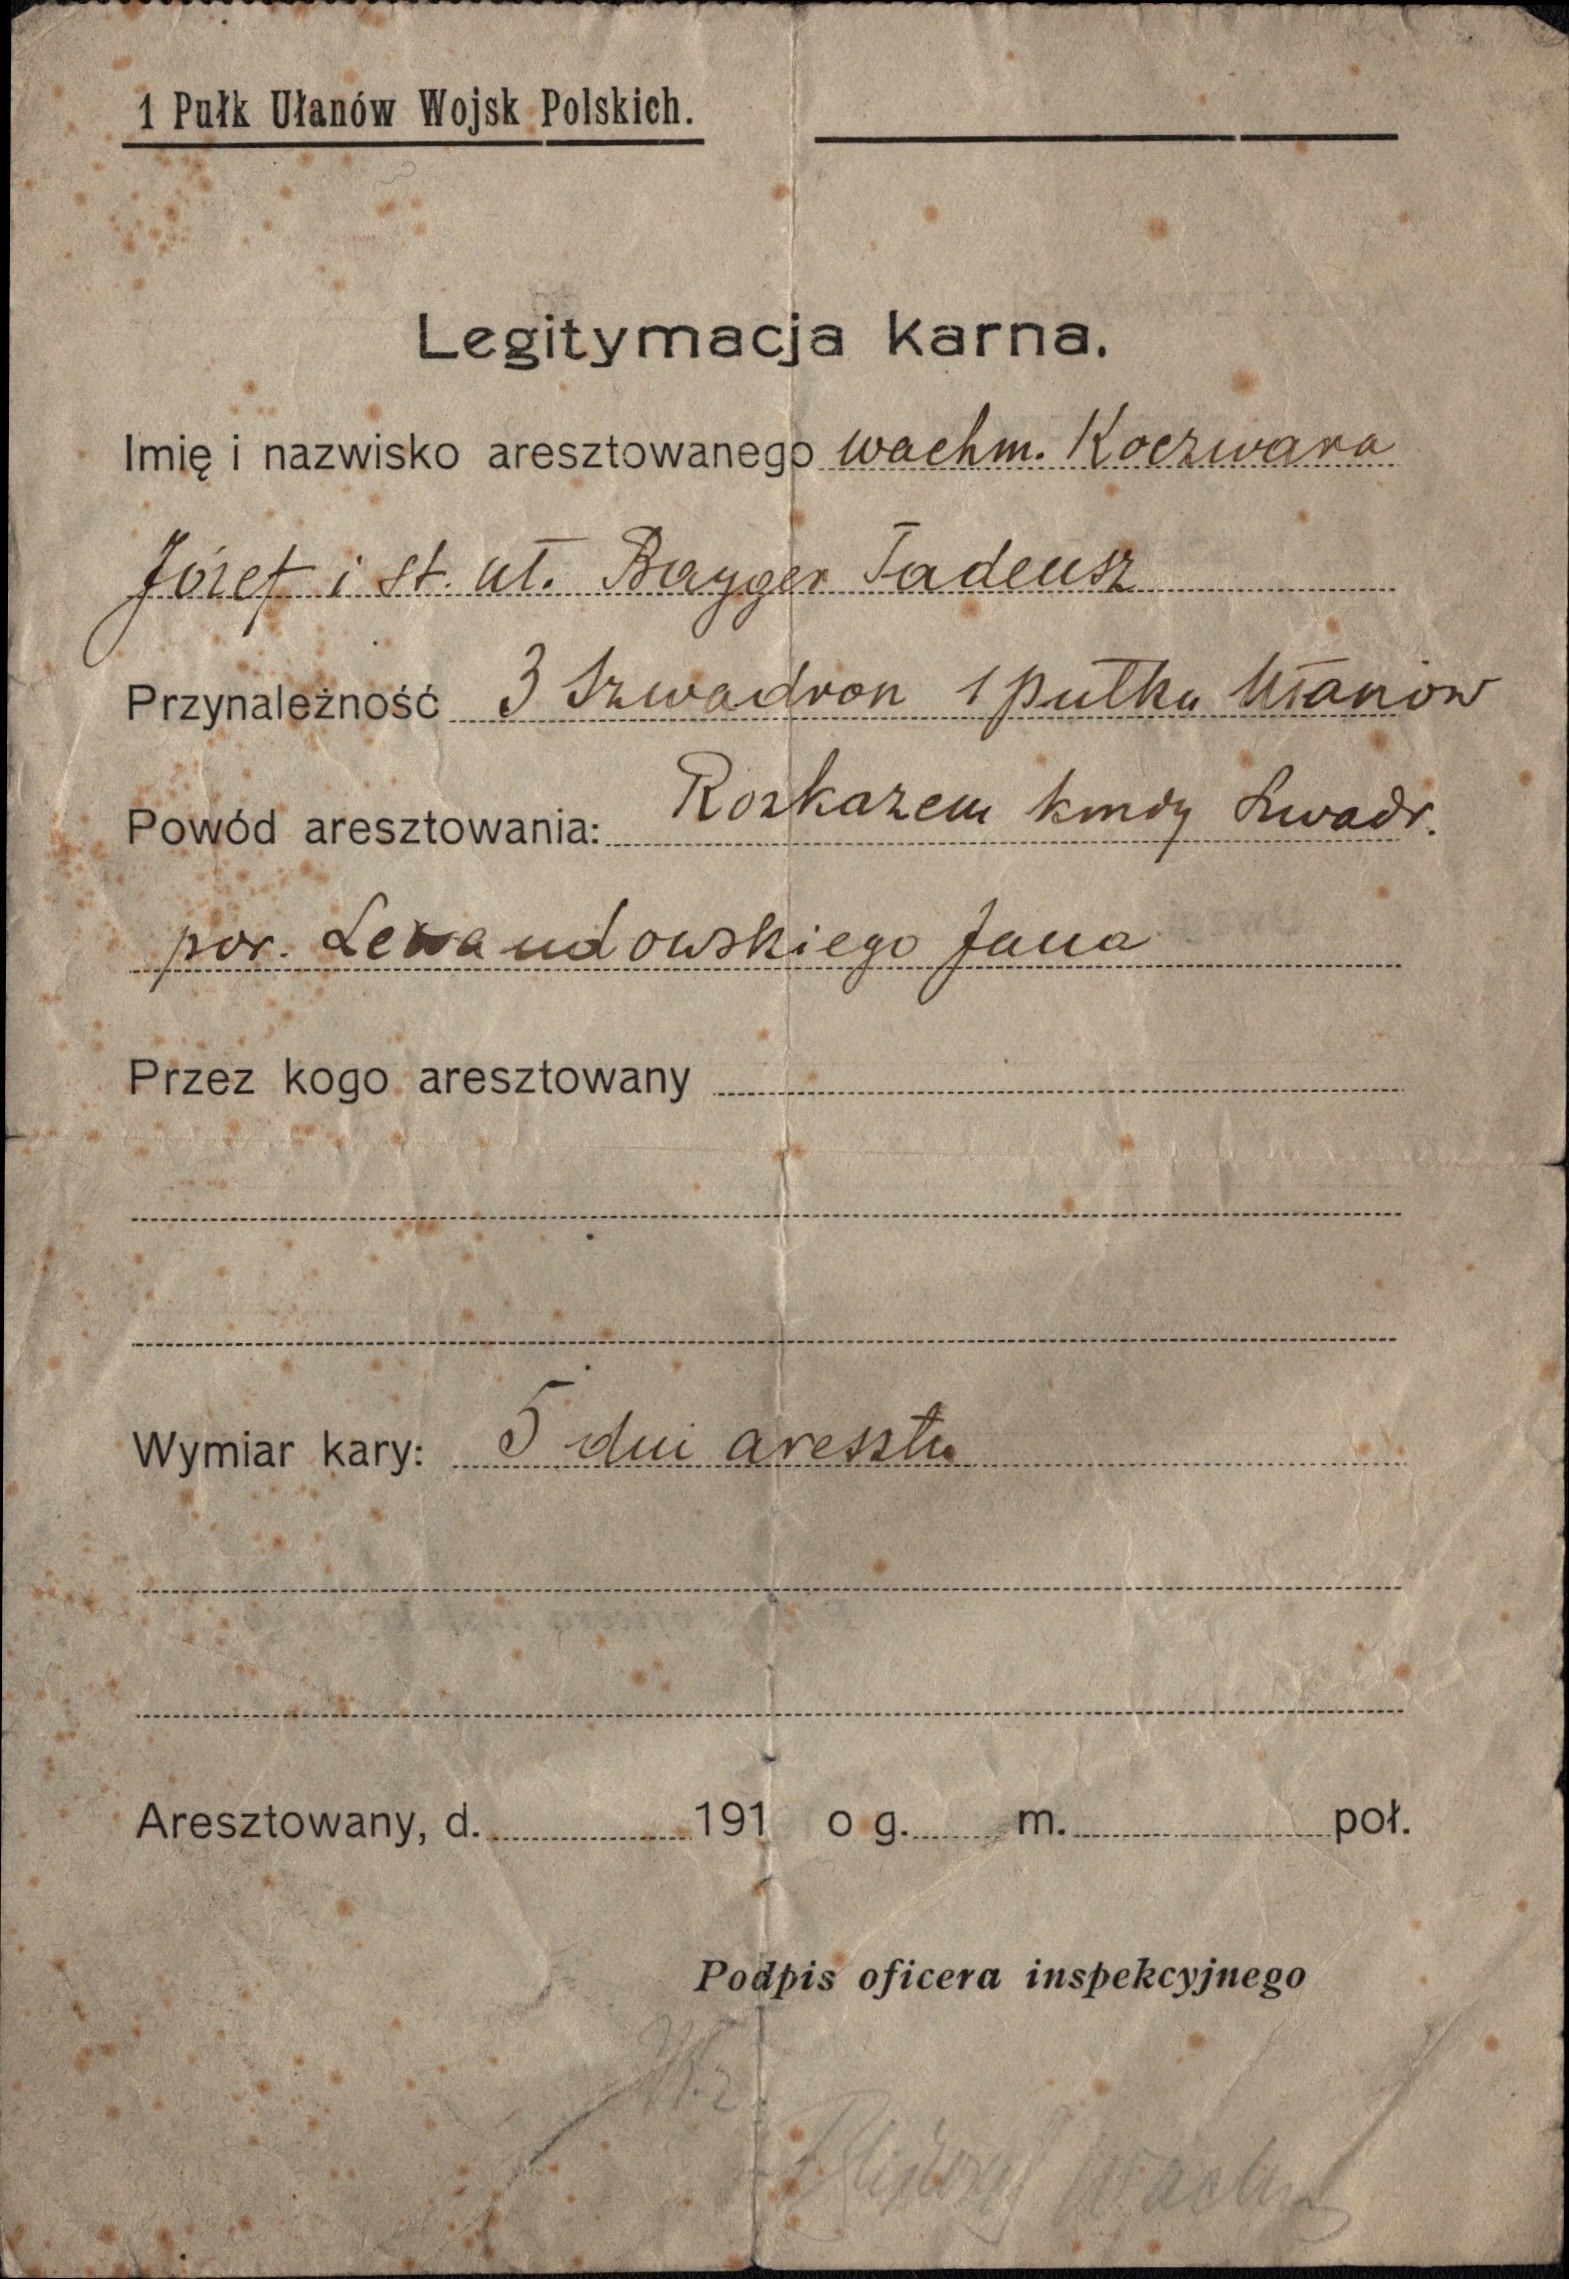 1 Pułk Ułanów Wojsk Polskich.
Legitymacja karna.
Imię i nazwisko aresztowanego wachm. Koczwara
Józef i st. uł. Bayger Tadeusz
Przynależność 3 Szwadron 1 pułku Ułanów
Powód aresztowania: Rozkazem kmdy Szwadr.
por. Lewandowskiego Jana
Przez kogo aresztowany
Wymiar kary: 5 dni aresztu
Aresztowany, d. 191 o g. m. poł.
Podpis oficera inspekcyjnego